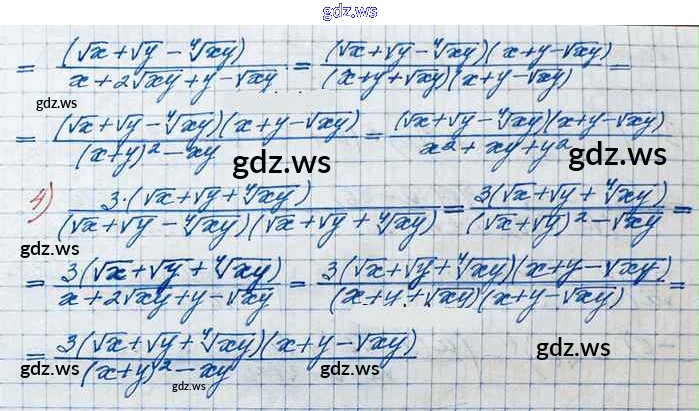 gdz.ws
= (√x + √y - ⁴√xy) / (x + 2√xy + y - √xy) = (√x + √y - ⁴√xy)(x + y - √xy) / (x + y + √xy)(x + y - √xy) =
gdz.ws
= (√x + √y - ⁴√xy)(x + y - √xy) / (x + y)² - xy = (√x + √y - ⁴√xy)(x + y - √xy) / x² + xy + y²
gdz.ws gdz.ws
4) 3·(√x + √y + ⁴√xy) / (√x + √y - ⁴√xy)(√x + √y + ⁴√xy) = 3(√x + √y + ⁴√xy) / (√x + √y)² - √xy =
gdz.ws gdz.ws
= 3(√x + √y + ⁴√xy) / x + 2√xy + y - √xy = 3(√x + √y + ⁴√xy)(x + y - √xy) / (x + y + √xy)(x + y - √xy) =
= 3(√x + √y + ⁴√xy)(x + y - √xy) / (x + y)² - xy
gdz.ws gdz.ws gdz.ws
gdz.ws